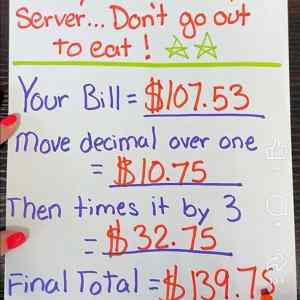 Server... Don't go out
to eat!
Your Bill = $107.53
Move decimal over one
= $10.75
Then times it by 3
= $32.75
Final Total = $139.75